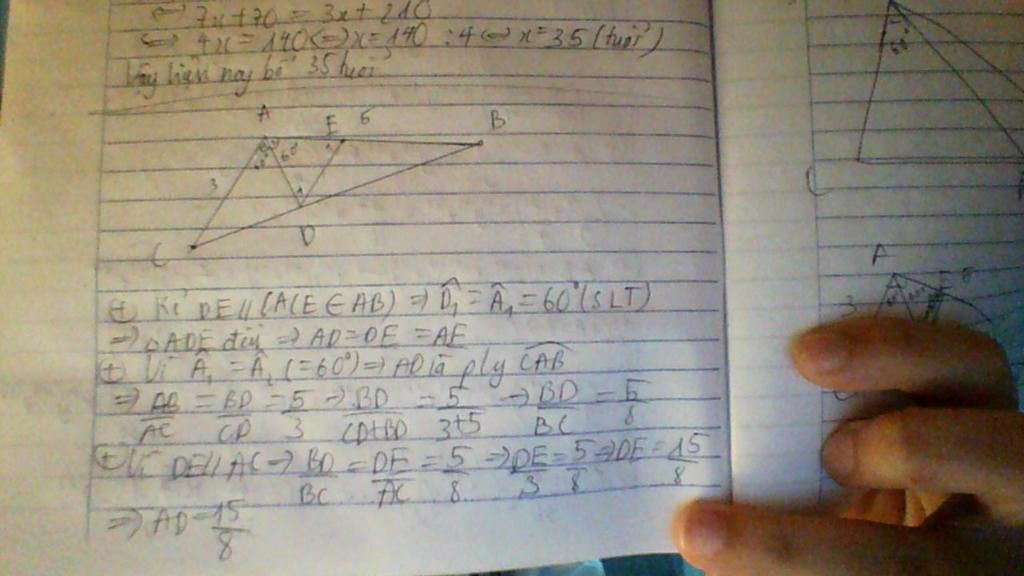 ⇔ 7x+70 = 3x+210
⇔ 4x = 140 ⇔ x = 140 : 4 ⇔ x = 35 (tuổi)
Vậy hiện nay bố 35 tuổi
A E 5 B
60°
3
C D
+ Kẻ DE // AC (E ∈ AB) ⇒ D̂₁ = Â₁ = 60° (SLT)
⇒ △ADE đều ⇒ AD = DE = AE
+ Vì Â₁ = Â₂ (=60°) ⇒ AD là p/g CAB
⇒ AB/AC = BD/CD = 5/3 ⇒ BD/CD+BD = 5/3+5 ⇒ BD/BC = 5/8
+ Vì DE // AC ⇒ BD/BC = DE/AC = 5/8 ⇒ DE/3 = 5/8 ⇒ DE = 15/8
⇒ AD = 15/8
60°
C
A
3 E